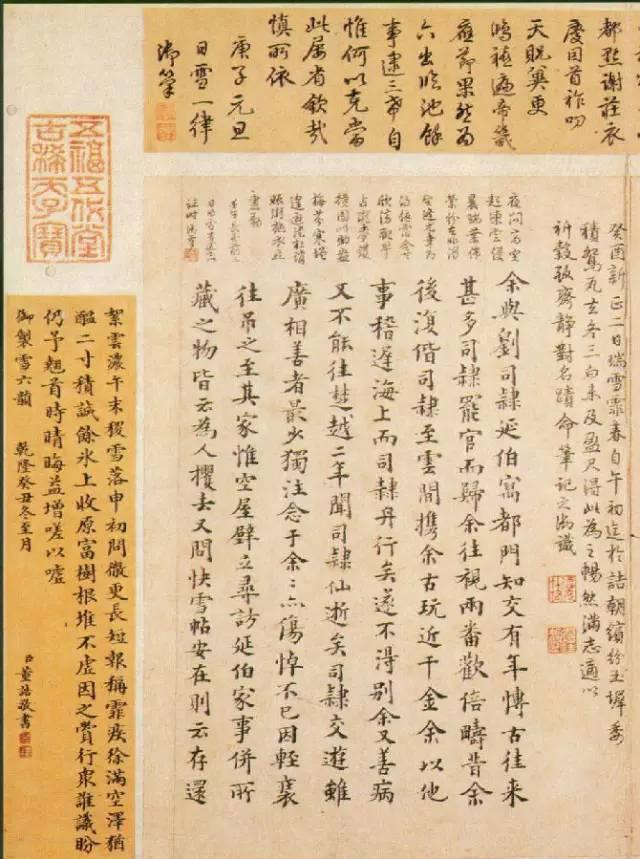 都點謝莊衣
慶因首祚叨
天貺冀更
鴻禧遍帝畿
應節果然為
六出臨池餘
事逮三希自
惟何以克當
此屢省欽哉
慎所依
庚子元旦
日雪一律
御筆
五福五代堂
古稀天子寶
癸酉新正一日瑞雪霏春自午初迄於詰朝繽紛玉墀委
積鴛瓦去冬三白未及盈尺得此為之暢然滿志適以
祈穀致齋靜對名蹟命筆記之御識
夜間高空
起凍雲侵
晨瑞葉佈
余與劉司隸延伯寓都門知交有年博古往來
甚多司隸罷官而歸余往視兩番歡倍疇昔余
後復偕司隸至雲間攜余古玩近千金余以他
事稽遲海上而司隸丹行矣遂不得別余又善病
又不能往楚越二年聞司隸仙逝矣司隸交遊雖
廣相善者最少獨注念于余〻亦傷悼不已因輕裝
往吊之至其家惟空屋壁立尋訪延伯家事併所
藏之物皆云為人攫去又問快雪帖安在則云存還
絮雲濃午末稷雪落申初問微更長短報稱霏疾徐滿空澤猶
醞二寸積誠餘氷上收原富樹根堆不虛因之賞行衆誰議盼
仍予翹首時晴晦益增嗟以噓
御製雪六韻 乾隆癸丑冬至月
臣董誥敬書